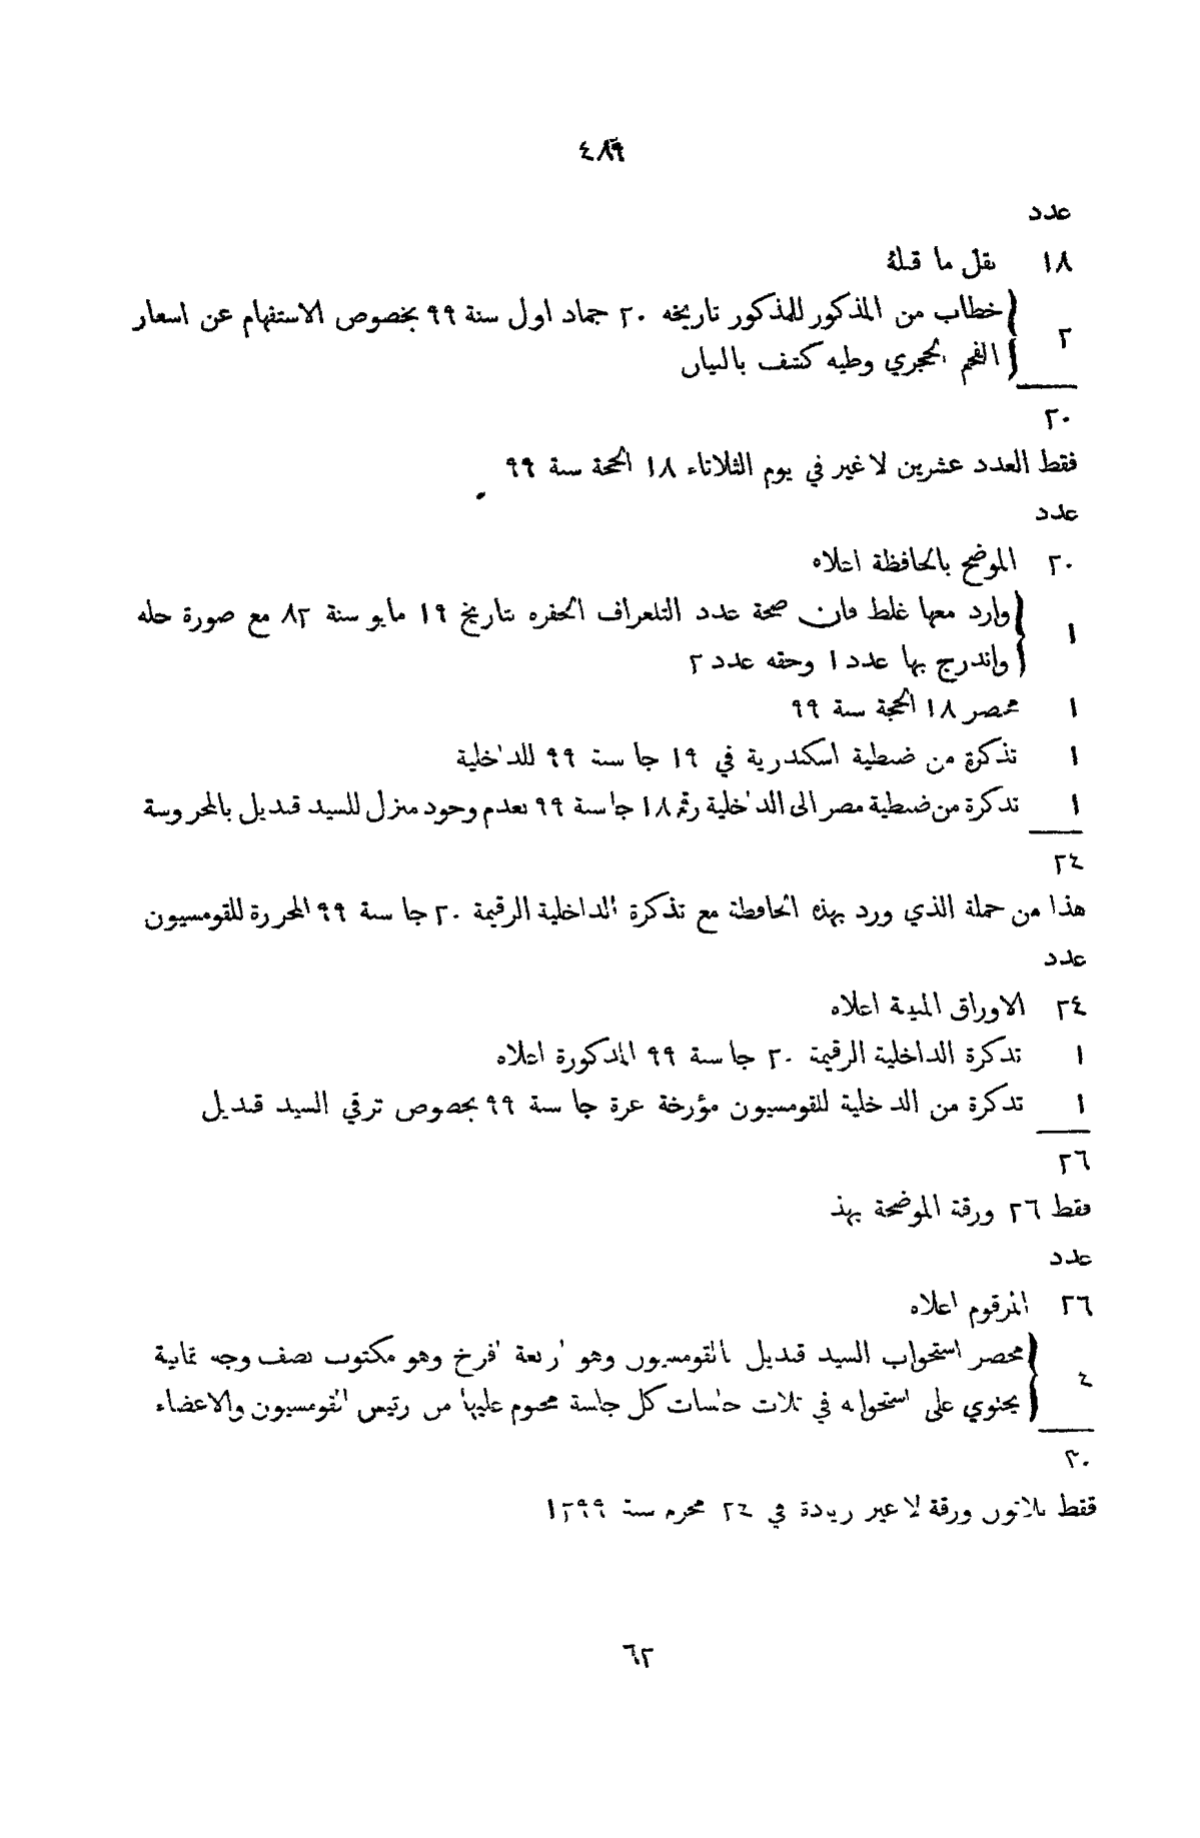 ٤٨٩
عدد
١٨ نقل ما قبلة
٢ خطاب من المذكور للمذكور تاريخه ٢٠ جماد اول سنة ٩٩ بخصوص الاستفهام عن اسعار
الفحم الحجري وطيه كشف بالبيان
٢٠
فقط العدد عشرين لا غير في يوم الثلاثاء ١٨ الحجة سنة ٩٩
عدد
٢٠ الموضح بالحافظة اعلاه
١ وارد معها غلط فان صحة عدد التلعراف الجفره بتاريخ ١٩ مايو سنة ٨٢ مع صورة حله
واندرج بها عدد ١ وحقه عدد ٢
١ محضر ١٨ الحجة سنة ٩٩
١ تذكرة من ضبطية اسكندرية في ١٩ جا سنة ٩٩ للداخلية
١ تذكرة من ضبطية مصر الى الداخلية رقم ١٨ جا سنة ٩٩ بعدم وجود منزل للسيد قنديل بالمحروسة
٢٤
هذا من جملة الذي ورد بهذه الحافظة مع تذكرة الداخلية الرقيمة ٢٠ جا سنة ٩٩ المحررة للقومسيون
عدد
٢٤ الاوراق المبينة اعلاه
١ تذكرة الداخلية الرقيمة ٢٠ جا سنة ٩٩ المذكورة اعلاه
١ تذكرة من الداخلية للقومسيون مؤرخة غرة جا سنة ٩٩ بخصوص ترقي السيد قنديل
٢٦
فقط ٢٦ ورقة الموضحة بهذ
عدد
٢٦ المرقوم اعلاه
٤ محضر استجواب السيد قنديل بالقومسيون وهو اربعة افرخ وهو مكتوب نصف وجه ثمانية
يحتوي على استجوابه في ثلاث جلسات كل جلسة مختوم عليها من رئيس القومسيون والاعضاء
٣٠
فقط ثلاثون ورقة لا غير زيادة في ٢٤ محرم سنة ١٢٩٩
٦٢